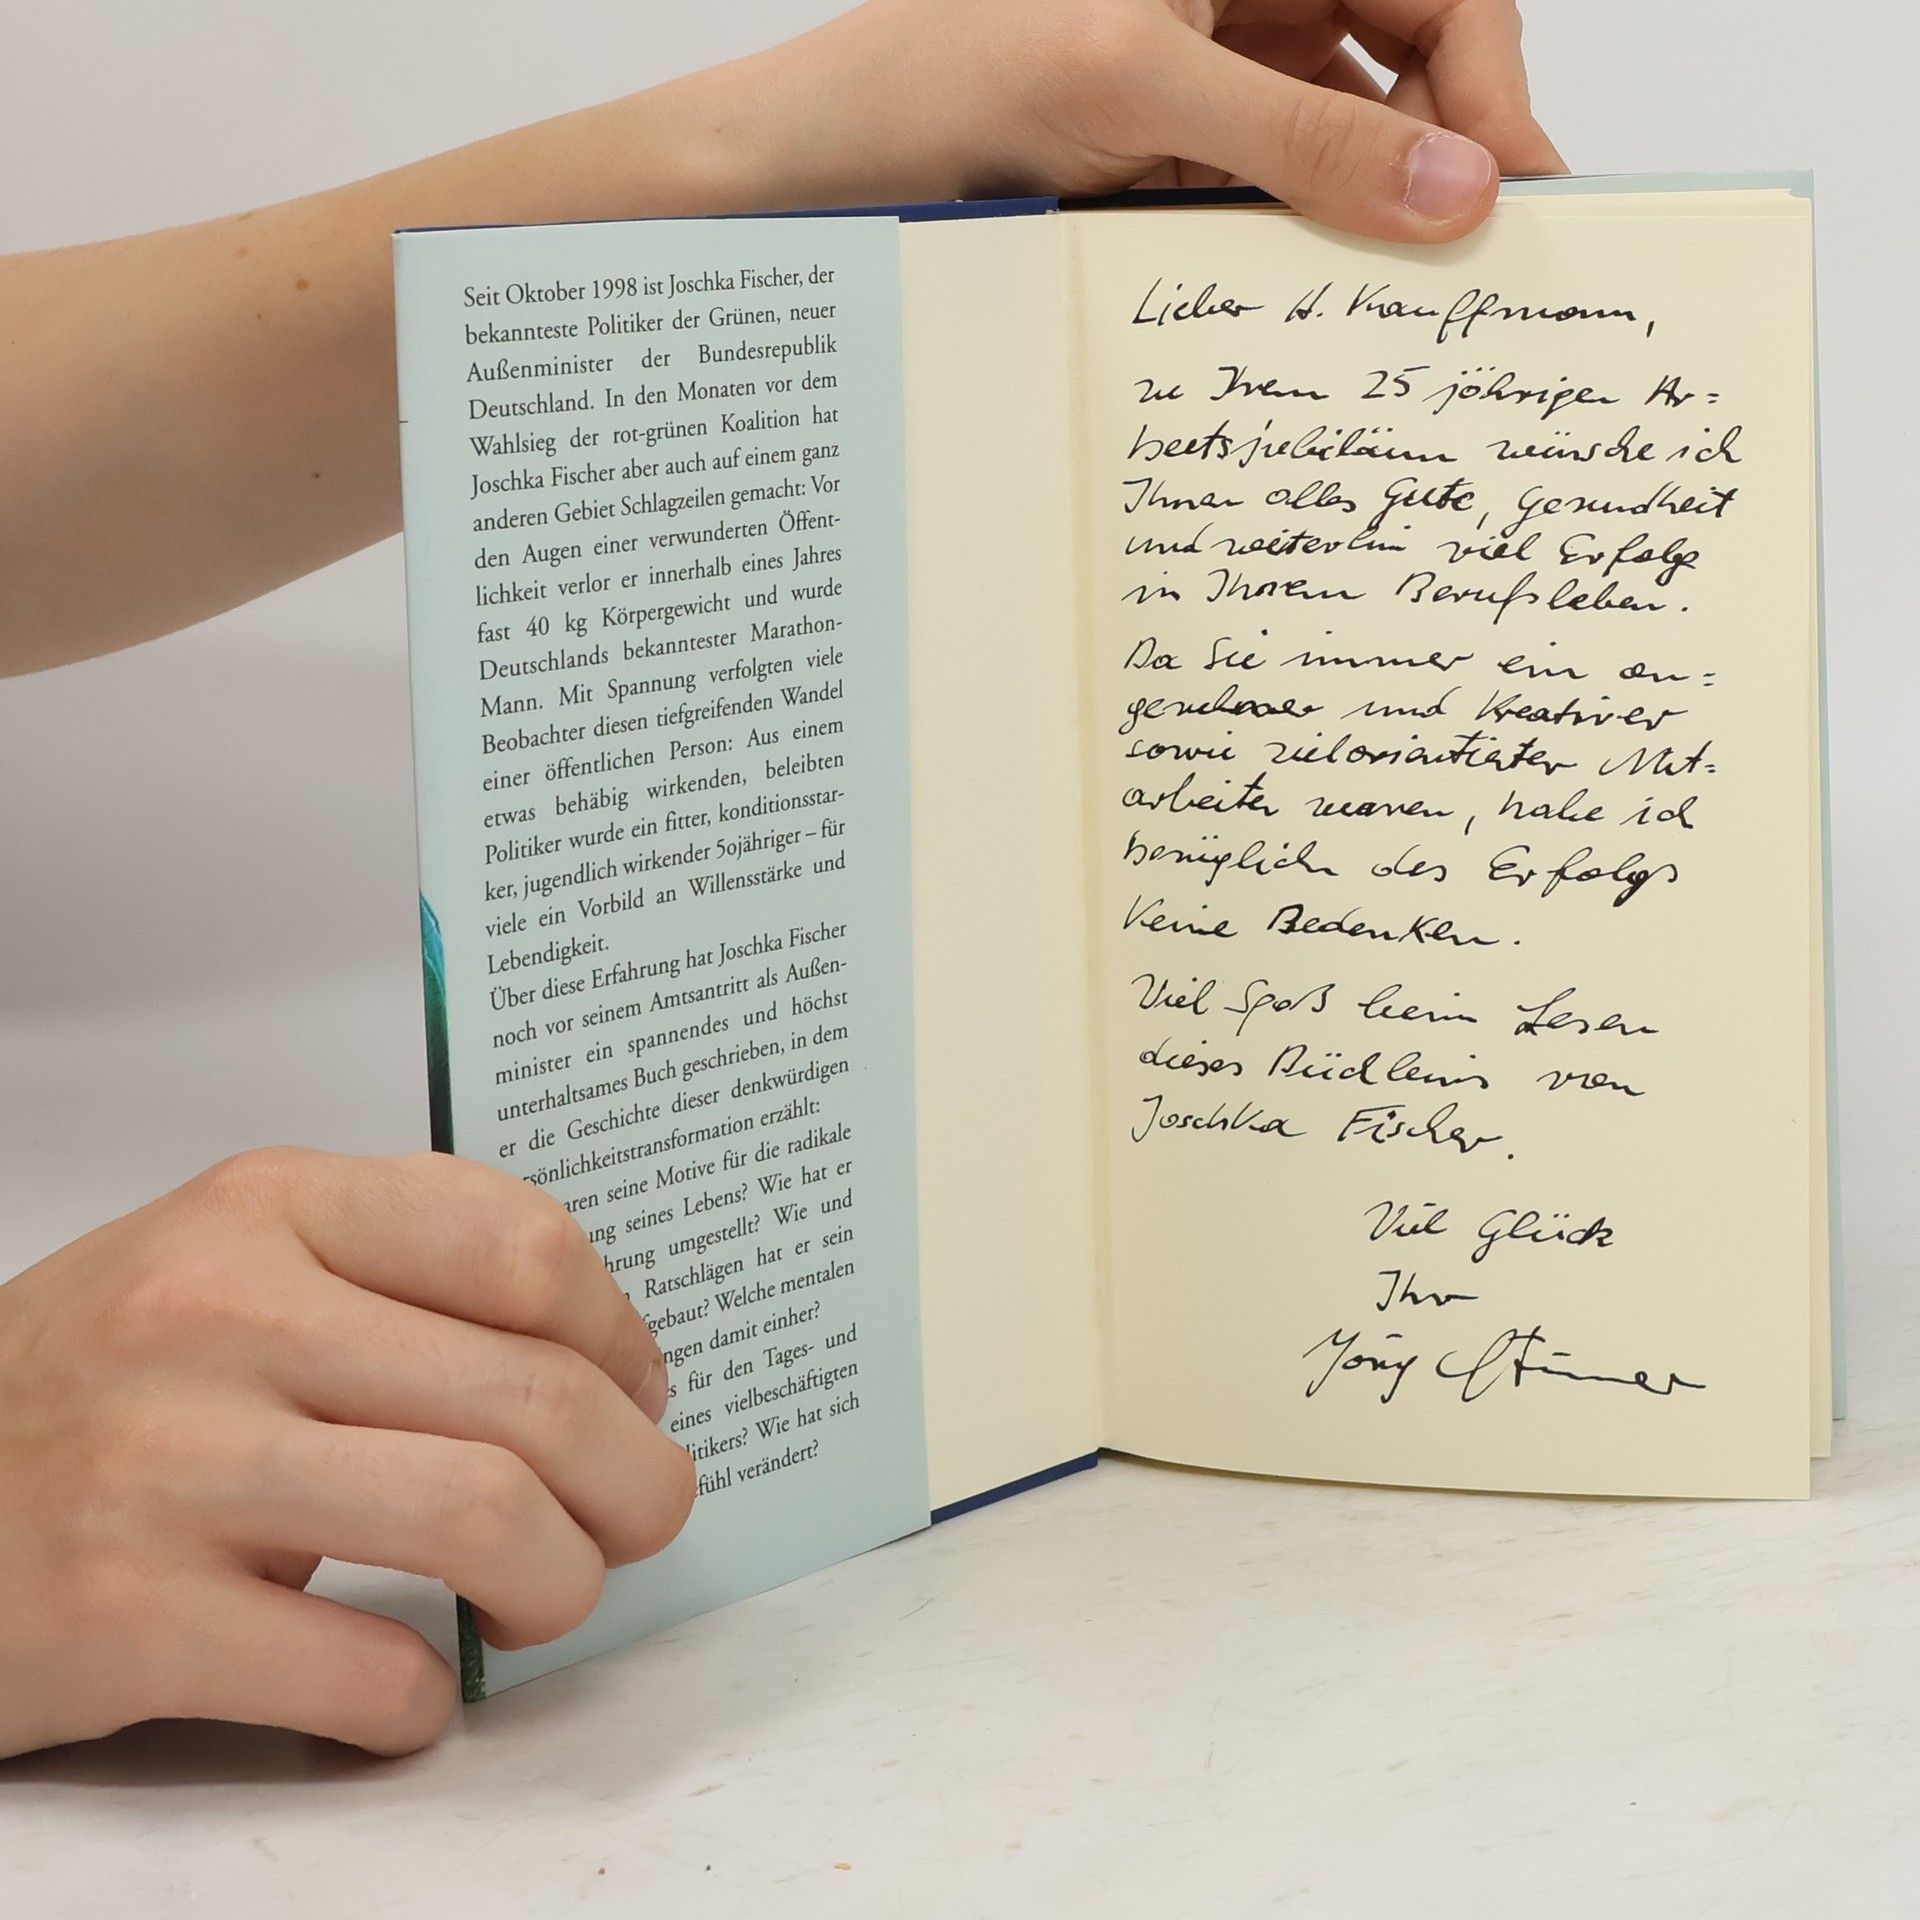 Seit Oktober 1998 ist Joschka Fischer, der
bekannteste Politiker der Grünen, neuer
Außenminister der Bundesrepublik
Deutschland. In den Monaten vor dem
Wahlsieg der rot-grünen Koalition hat
Joschka Fischer aber auch auf einem ganz
anderen Gebiet Schlagzeilen gemacht: Vor
den Augen einer verwunderten Öffent-
lichkeit verlor er innerhalb eines Jahres
fast 40 kg Körpergewicht und wurde
Deutschlands bekanntester Marathon-
Mann. Mit Spannung verfolgten viele
Beobachter diesen tiefgreifenden Wandel
einer öffentlichen Person: Aus einem
etwas behäbig wirkenden, beleibten
Politiker wurde ein fitter, konditionsstar-
ker, jugendlich wirkender 50jähriger – für
viele ein Vorbild an Willensstärke und
Lebendigkeit.
Über diese Erfahrung hat Joschka Fischer
noch vor seinem Amtsantritt als Außen-
minister ein spannendes und höchst
unterhaltsames Buch geschrieben, in dem
er die Geschichte dieser denkwürdigen
rsönlichkeitstransformation erzählt:
aren seine Motive für die radikale
ung seines Lebens? Wie hat er
hrung umgestellt? Wie und
Ratschlägen hat er sein
fgebaut? Welche mentalen
ngen damit einher?
s für den Tages- und
eines vielbeschäftigten
litikers? Wie hat sich
fühl verändert?
Lieber H. Kauffmann,
zu Ihrem 25 jährigen Ar=
beitsjubiläum wünsche ich
Ihnen alles Gute, Gesundheit
und weiterhin viel Erfolg
in Ihrem Berufsleben.
Da Sie immer ein an=
genehmer und Kreativer
sowie zielorientierter Mit=
arbeiter waren, habe ich
bezüglich des Erfolgs
Keine Bedenken.
Viel Spaß beim Lesen
dieses Büchleins von
Joschka Fischer.
Viel Glück
Ihr
Jörg